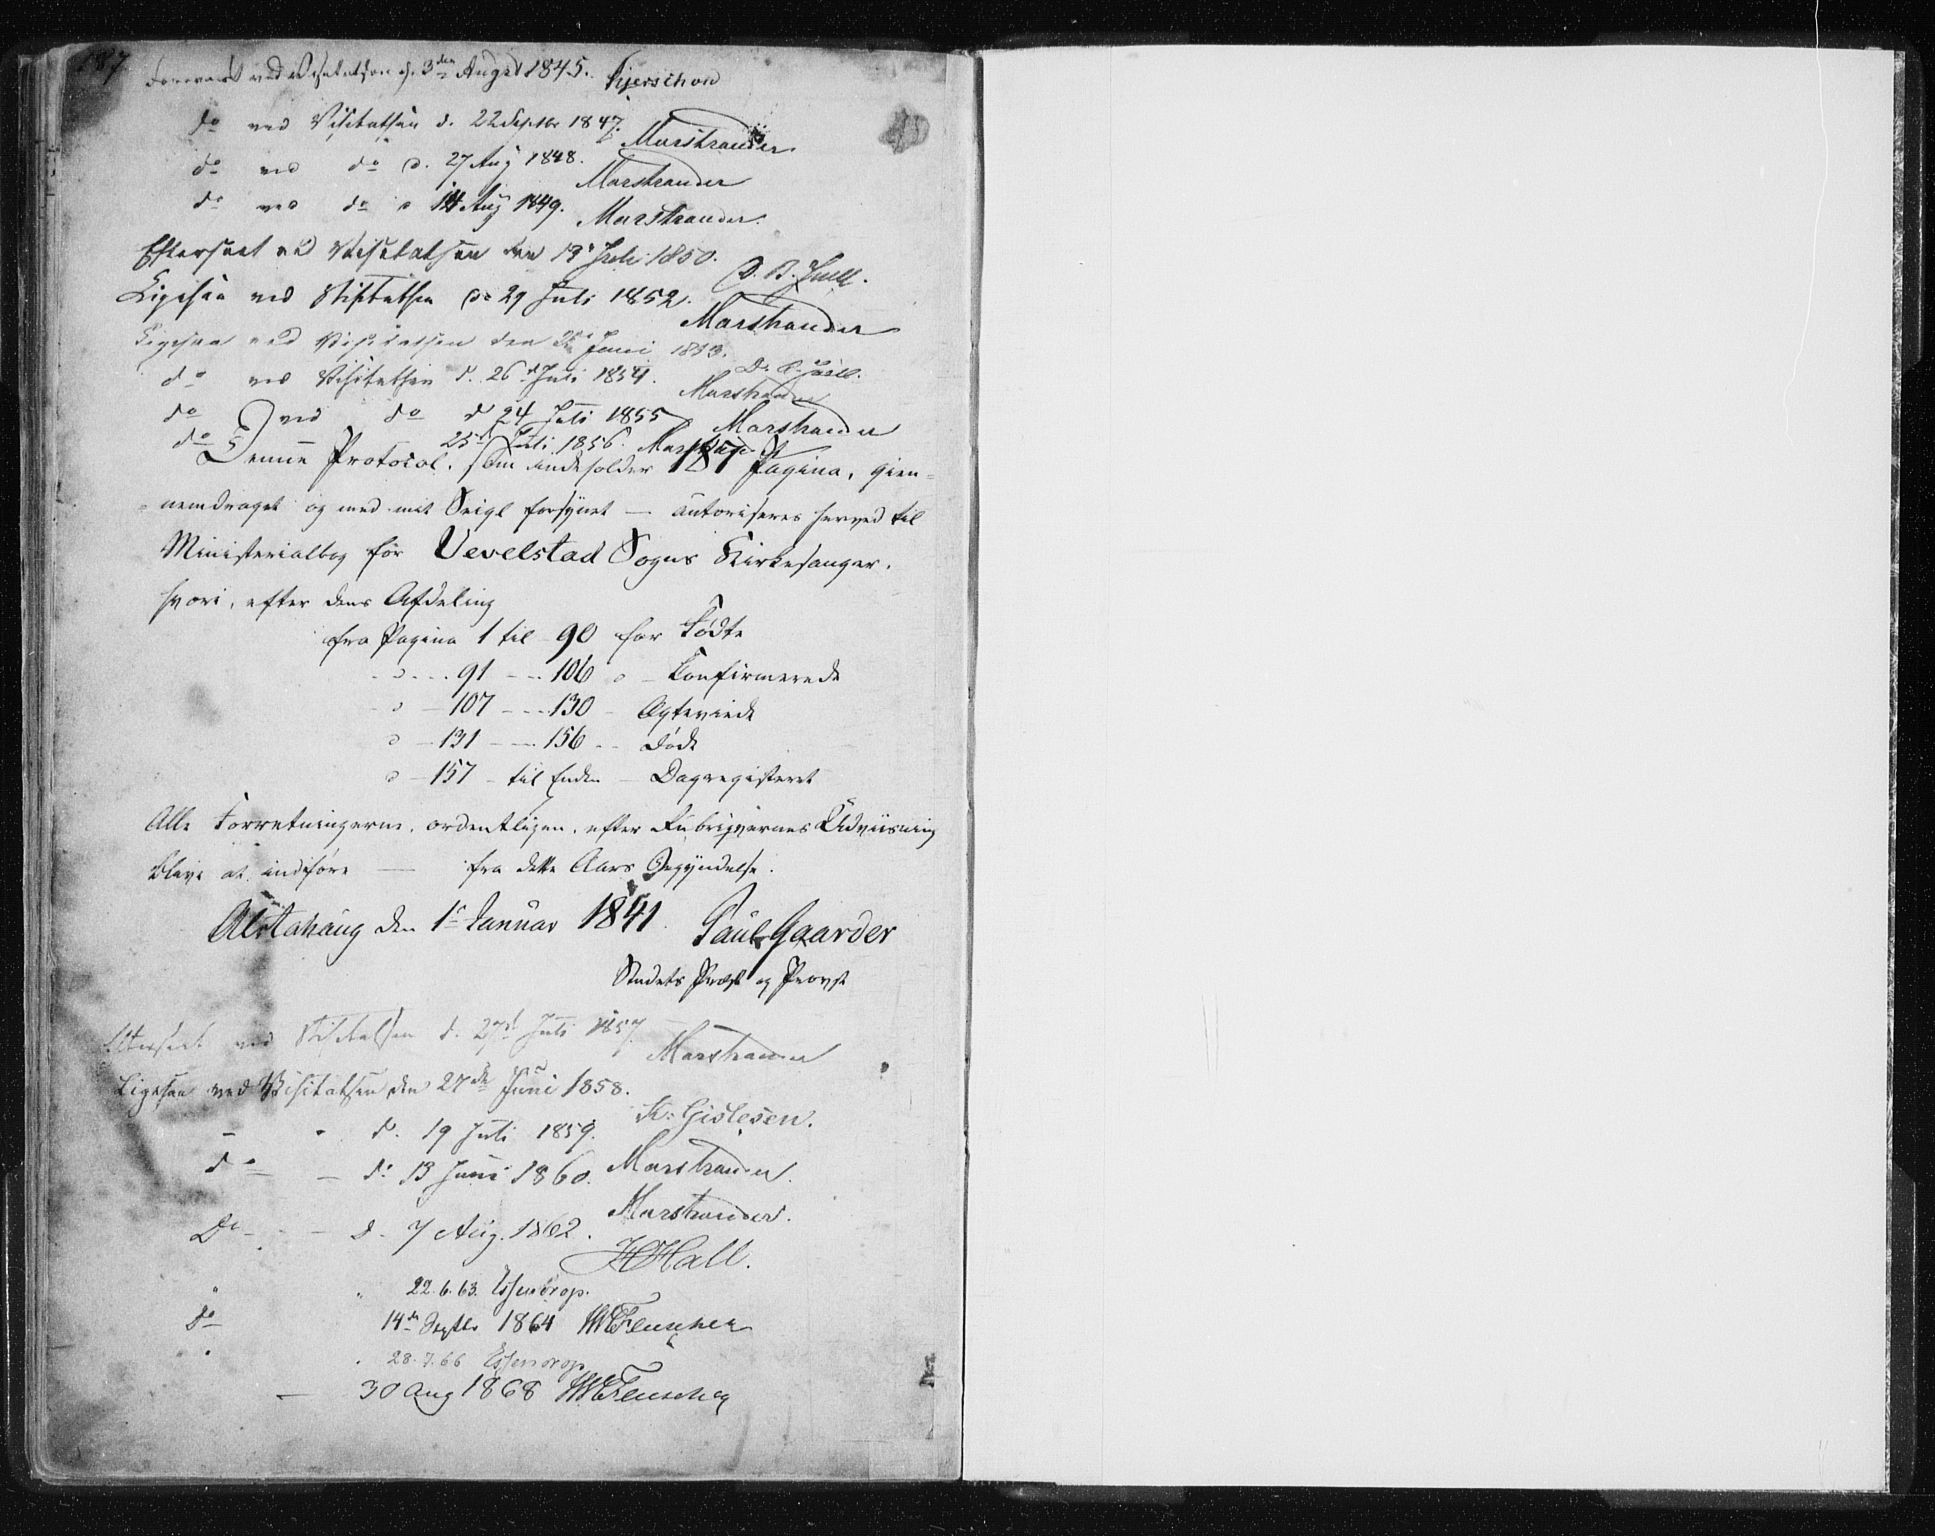 187.
Foreviist ved Visitatsen d. 3den August 1845. Kjerschow
do ved Visitatsen d. 22 Septbr 1847. Marstrander
do ved do d. 27 Aug 1848. Marstrander
do ved do d 14 Aug 1849. Marstrander.
Efterseet ved Visitatsen den 19 Juli 1850. D. B. Juell.
Ligesaa ved Visitatsen d. 29 Juli 1852. Marstrander
Ligesaa ved Visitatsen den Juni 1853. D. B. Juell.
do ved Visitatsen d. 26d Juli 1854. Marstrander
do ved do d 24 Juli 1855 Marstrander
do 25d Juli 1856. Marstrander
Denne Protocol, som indeholder 187 Pagina, gien-
nemdraget og med mit Seigl forsynet — autoriseres herved til
Ministerialbog for Vevelstad Sogns Kirkesanger,
hvori, efter dens Afdeling
fra Pagina 1 til 90 for Fødte
" - 91 - 106 " - Confirmerede
" - 107 - 130 - Ægteviede
" - 131 - 156 - Døde
" - 157 - til Enden - Dagregisteret
Alle Forretningerne, ordentligen, efter Rubriqvernes Udviisning
blive at indføre — fra dette Aars Begyndelse.
Alstahaug den 1te Januar 1841. Paul Gaarder
Stedets Præst og Provst
Efterseet ved Visitatsen d. 27d Juli 1857. Marstrander
Ligesaa ved Visitatsen den 27de Juni 1858. K. Gislesen.
- " d. 19 Juli 1859. Marstrander.
do - d. 13 Juni 1860. Marstrander.
Do - - d. 7 Aug. 1862. HHall.
" " 22.6.63. Essendrop.
do 14de Septbr 1864 Fleuscher
" " 28.7.66 Essendrop
— 30 Aug 1868 Fleuscher